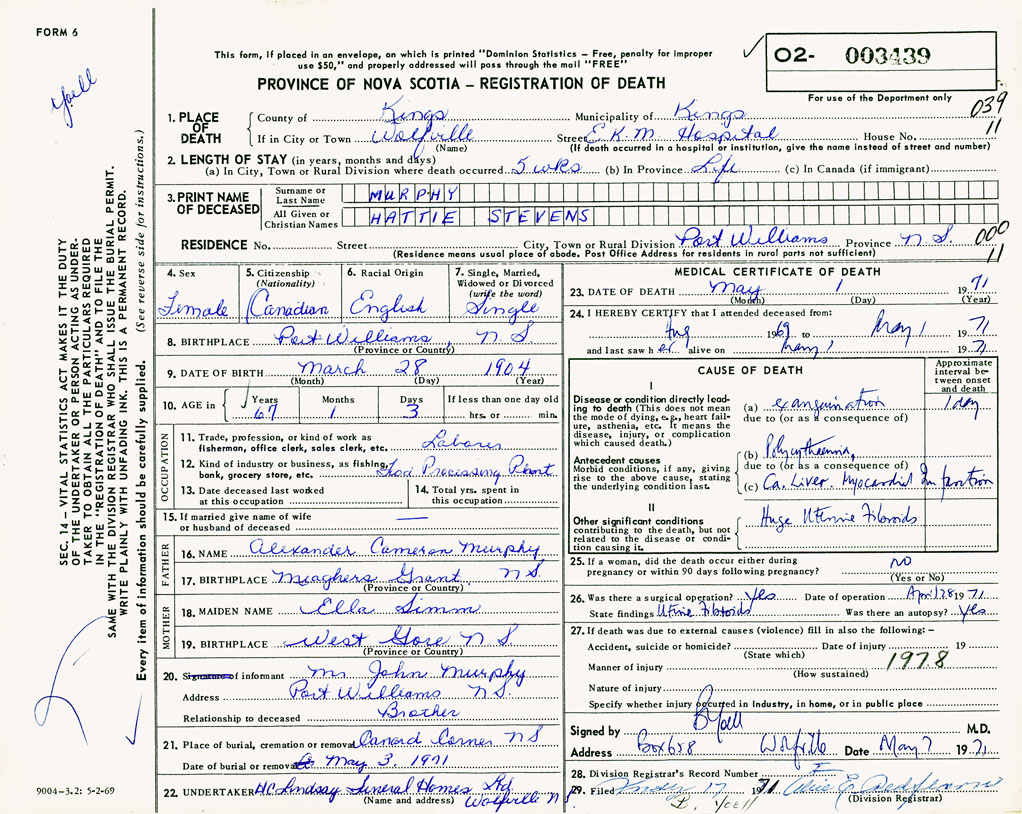 FORM 6
Yoell
This form, if placed in an envelope, on which is printed "Dominion Statistics – Free, penalty for improper
use $50," and properly addressed will pass through the mail "FREE"
PROVINCE OF NOVA SCOTIA – REGISTRATION OF DEATH
O2- 003439
For use of the Department only
039
11
1. PLACE OF DEATH
County of Kings Municipality of Kings
If in City or Town Wolfville Street E.K.M. Hospital House No.
(Name) (If death occurred in a hospital or institution, give the name instead of street and number)
2. LENGTH OF STAY (in years, months and days)
(a) In City, Town or Rural Division where death occurred 5 wks (b) In Province Life (c) In Canada (if immigrant)
3. PRINT NAME OF DECEASED
Surname or Last Name MURPHY
All Given or Christian Names HATTIE STEVENS
RESIDENCE No. Street City, Town or Rural Division Port Williams Province N.S. 000
11
(Residence means usual place of abode. Post Office Address for residents in rural parts not sufficient)
4. Sex Female
5. Citizenship (Nationality) Canadian
6. Racial Origin English
7. Single, Married, Widowed or Divorced (write the word) Single
8. BIRTHPLACE Port Williams, N S
(Province or Country)
9. DATE OF BIRTH March 28 1904
(Month) (Day) (Year)
10. AGE in Years 67 Months 1 Days 3 If less than one day old hrs. or min.
OCCUPATION
11. Trade, profession, or kind of work as
fisherman, office clerk, sales clerk, etc. Laborer
12. Kind of industry or business, as fishing,
bank, grocery store, etc. Food Processing Plant
13. Date deceased last worked
at this occupation
14. Total yrs. spent in
this occupation
15. If married give name of wife
or husband of deceased —
FATHER
16. NAME Alexander Cameron Murphy
17. BIRTHPLACE Meaghers Grant N S.
(Province or Country)
MOTHER
18. MAIDEN NAME Ella Simm
19. BIRTHPLACE West Gore N S
(Province or Country)
20. Signature of informant Mr John Murphy
Address Port Williams N S.
Relationship to deceased Brother
21. Place of burial, cremation or removal Canard Corner N S
Date of burial or removal May 3, 1971
22. UNDERTAKER H.C. Lindsay Funeral Homes Ltd
(Name and address) Wolfville N
MEDICAL CERTIFICATE OF DEATH
23. DATE OF DEATH May 1 1971
(Month) (Day) (Year)
24. I HEREBY CERTIFY that I attended deceased from:
Aug 1969 to May 1 1971
and last saw her alive on May 1 1971
CAUSE OF DEATH
Approximate interval between onset and death
I
Disease or condition directly leading to death (This does not mean the mode of dying, e.g., heart failure, asthenia, etc. It means the disease, injury, or complication which caused death.)
(a) exanguination 1 day
due to (or as a consequence of)
Antecedent causes
Morbid conditions, if any, giving rise to the above cause, stating the underlying condition last.
(b) Polycythemia,
due to (or as a consequence of)
(c) Ca. Liver. Myocardial Infarction
II
Other significant conditions
contributing to the death, but not related to the disease or condition causing it.
Huge Uterine Fibroids
25. If a woman, did the death occur either during
pregnancy or within 90 days following pregnancy? NO
(Yes or No)
26. Was there a surgical operation? Yes Date of operation April 28 1971
State findings Uterine Fibroids Was there an autopsy? Yes
27. If death was due to external causes (violence) fill in also the following: –
Accident, suicide or homicide? Date of injury 19
(State which) 1978
Manner of injury
(How sustained)
Nature of injury
Specify whether injury occurred in industry, in home, or in public place
Signed by B Yoell M.D.
Address Box 658 Wolfville Date May 7 1971
28. Division Registrar's Record Number
29. Filed May 17 1971
B. Yoell (Division Registrar)
SEC. 14 – VITAL STATISTICS ACT MAKES IT THE DUTY
OF THE UNDERTAKER OR PERSON ACTING AS UNDERTAKER TO OBTAIN ALL THE PARTICULARS REQUIRED
IN THE "REGISTRATION OF DEATH" AND TO FILE THE
SAME WITH THE DIVISION REGISTRAR WHO SHALL ISSUE THE BURIAL PERMIT.
WRITE PLAINLY WITH UNFADING INK. THIS IS A PERMANENT RECORD.
Every item of information should be carefully supplied. (See reverse side for instructions.)
9004–3.2: 5-2-69